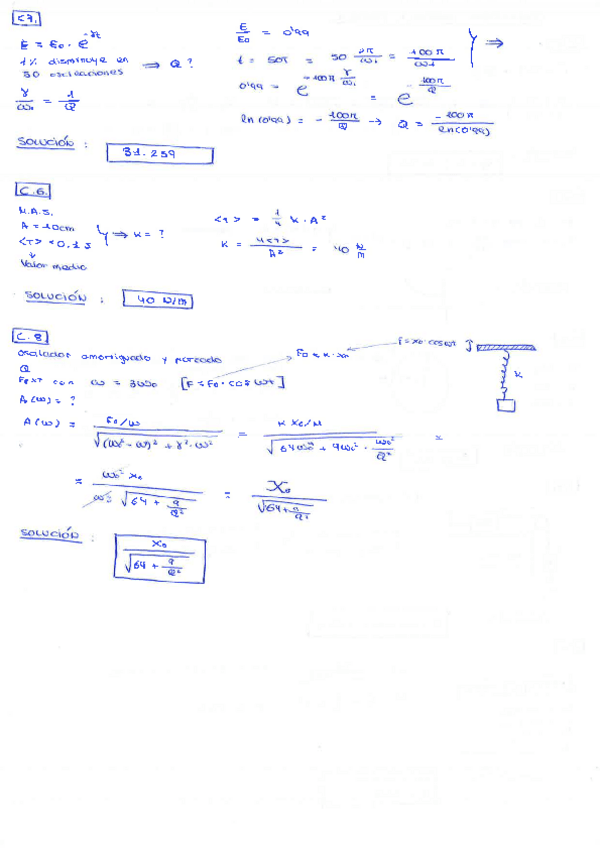 C7.
E = E₀ · e^-γt
1% disminuye en
50 oscilaciones ⟹ Q ?
γ/ω₀ = 1/Q
E/E₀ = 0'99
t = 50T = 50 2π/ω₁ = 100π/ω₁ } ⟹
0'99 = e^-100π γ/ω₁ = e^-100π/Q
ln(0'99) = - 100π/Q → Q = -100π/ln(0'99)
SOLUCIÓN : 31.259
C.6.
M.A.S.
A = 10cm
<T> = 0.1 J } ⟹ K = ?
Valor medio
<T> = 1/4 K · A²
K = 4<T>/A² = 40 N/m
SOLUCIÓN : 40 N/m
C.8.
Oscilador amortiguado y forzado
Q
Fext con ω = 3ω₀ [F = F₀ · cos ωt]
F₀ = K · x₀
K
A(ω) = ?
A(ω) = F₀/M / √((ω₀² - ω²)² + γ² · ω²) = K X₀/M / √(64ω₀⁴ + 9ω₀² · ω₀²/Q²) =
= ω₀² x₀ / ω₀² √(64 + 9/Q²) = X₀ / √(64 + 9/Q²)
SOLUCIÓN : X₀ / √(64 + 9/Q²)